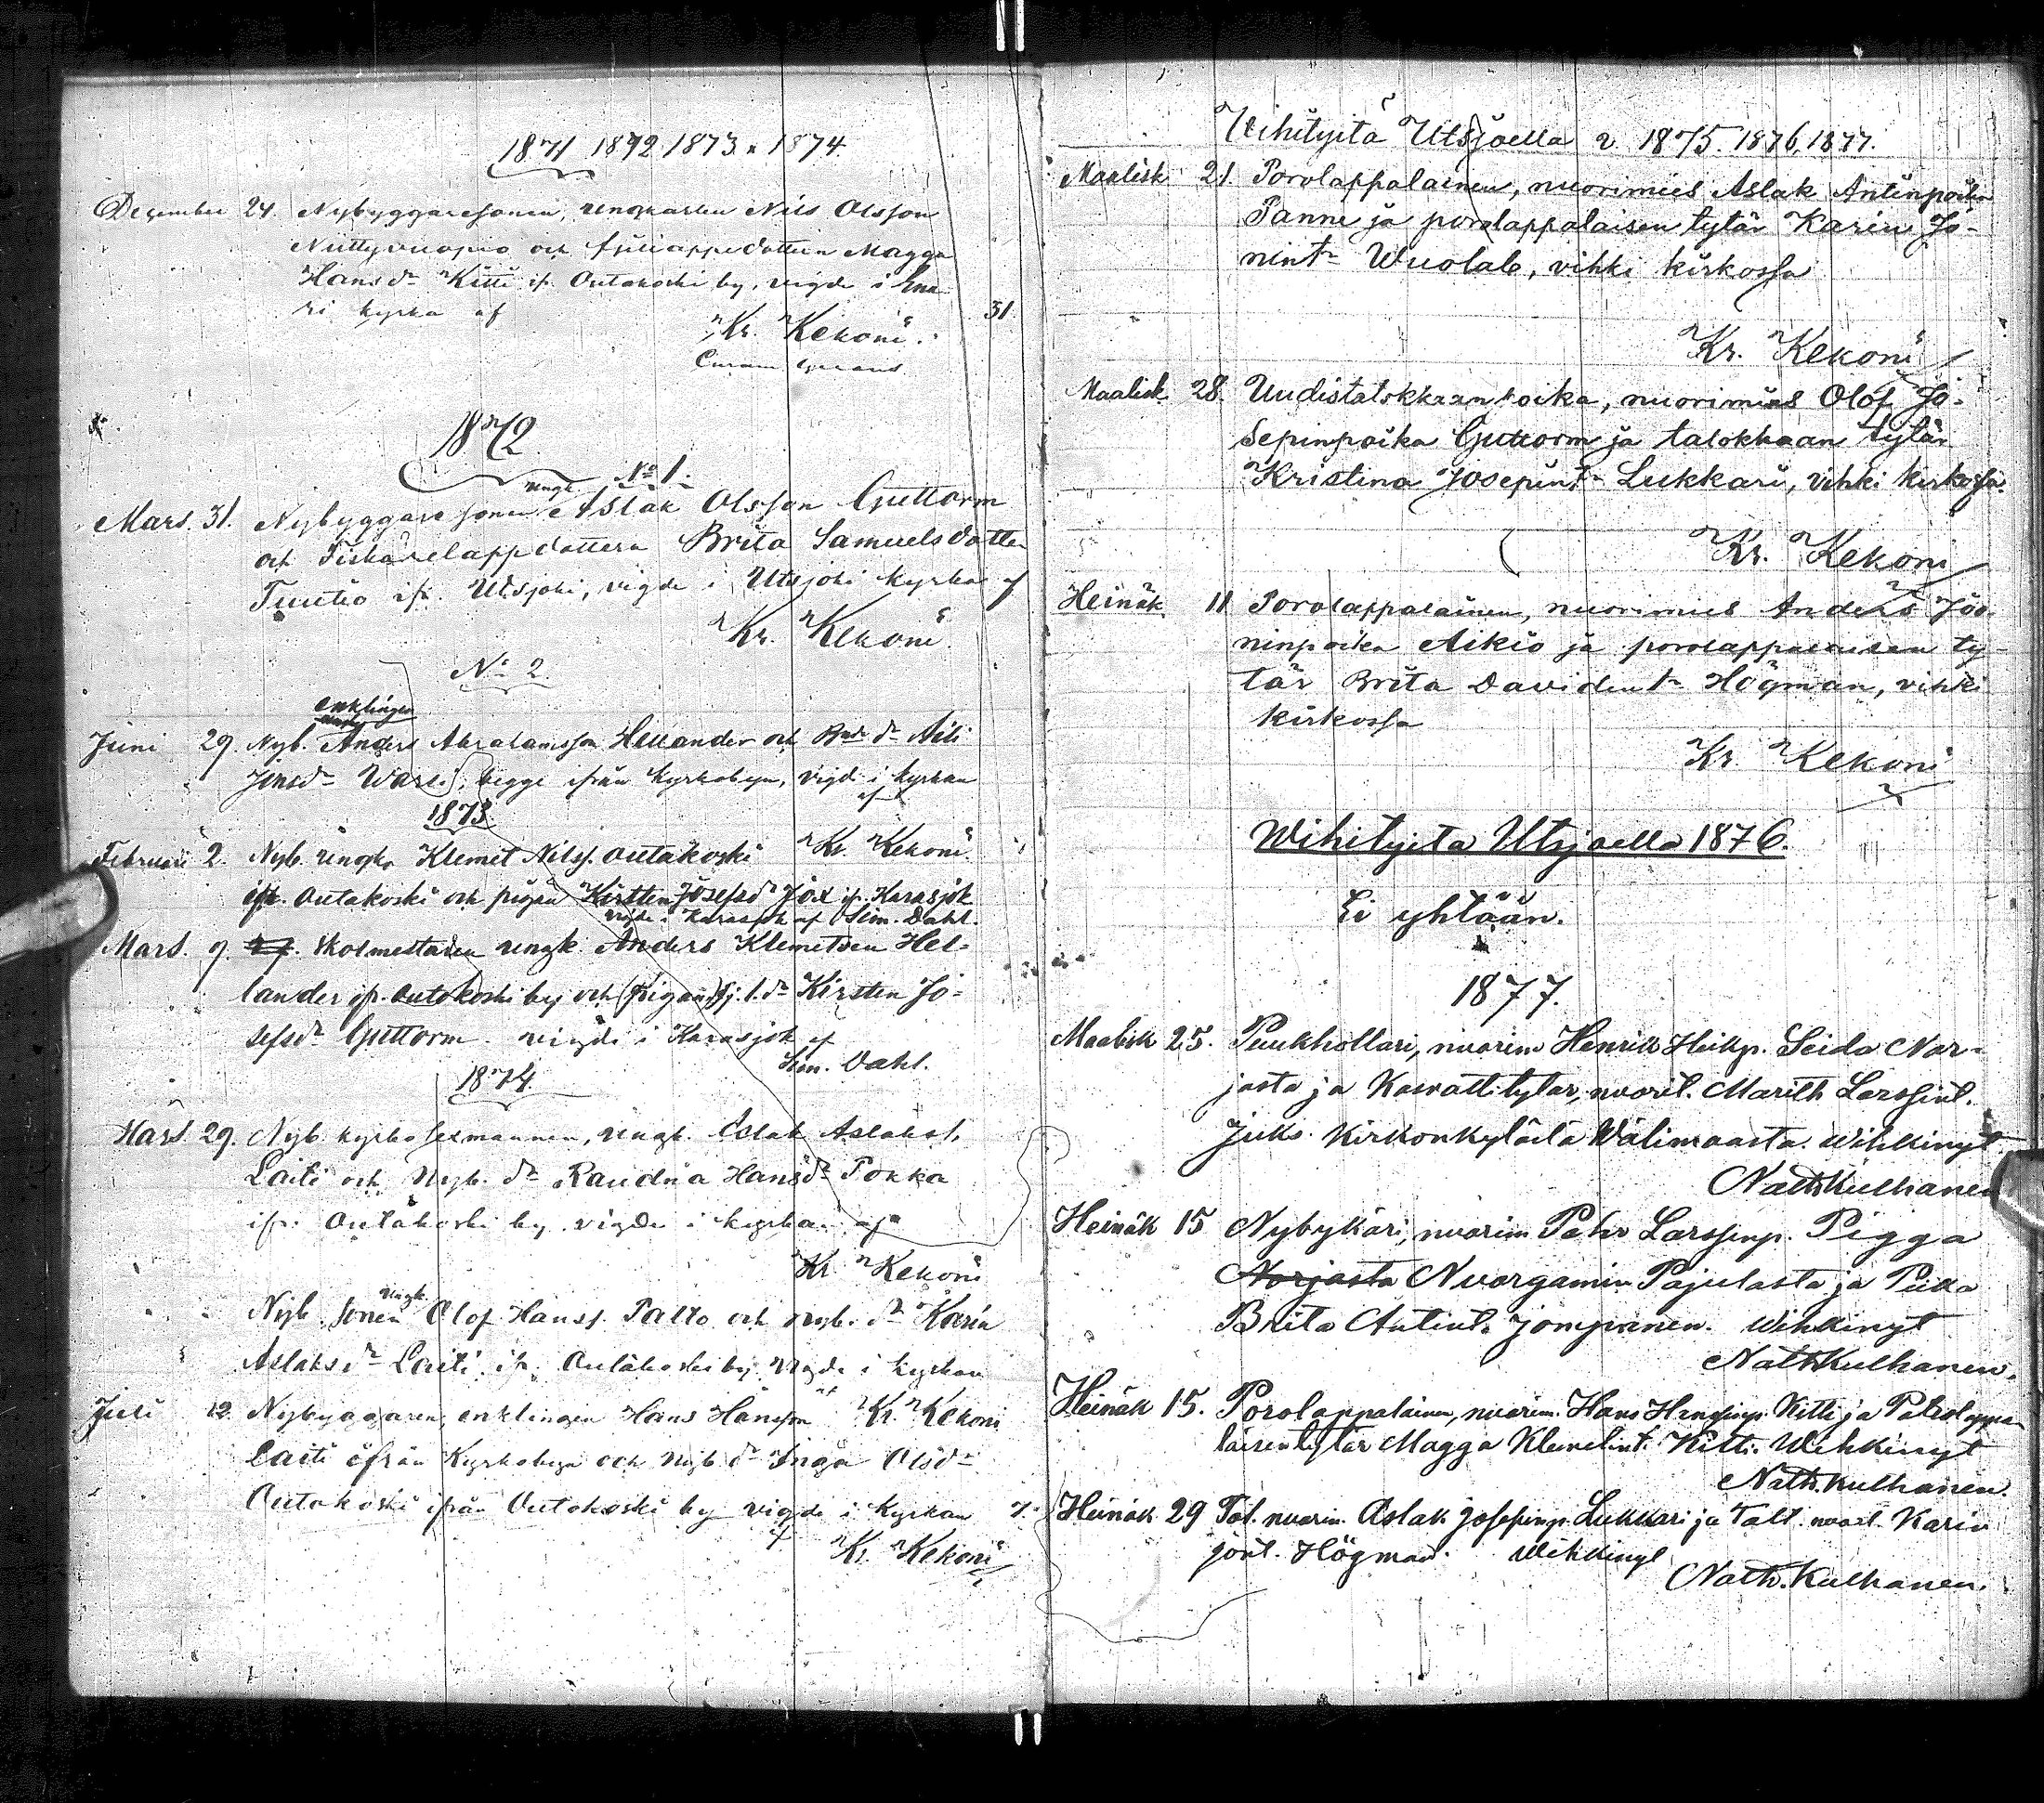 1871 1872 1873 & 1874.
Dezember 24. Nybyggaresonen, ungkarlen Nils Olsson
Niittyvuopio och fjellappsdottern Magga
Hansdr Kitti ifr. Outakoski by, vigde i Ena-
ri kyrka af 31
Kr. Kekoni.
Curam gerens
1872.
No 1.
ungk.
Mars. 31. Nybyggaresonen Aslak Olsson Guttorm
och Fiskarelappdottern Brita Samuelsdotter
Tuutio ifr. Utsjoki, vigde i Utsjoki kyrka af
Kr. Kekoni.
No 2.
enklingen
Juni 29. Nyb. Anders Abrahamsson Hellander och dr Aili
Jonsdr Warsi, begge ifrån kyrkobyn, vigde i kyrkan
af
1873.
Februari 2. Nyb. ungka Klemet Nilss. Outakoski Kr. Kekoni.
ifr. Outakoski och pigan Kirsten Josefsdr Jox ifr. Karasjok
vigde i Karasjok af Sim. Dahl.
Mars. 9. Skolmestaren ungk. Anders Klemetsen Hel-
lander ifr. Outakoski by och (pigan) fj. l. dr Kirsten Jo-
sefsdr Guttorm. vigde i Karasjok af
Sim. Dahl.
1874.
Mars 29. Nyb. kyrkosexmannen, ungk. Aslak Aslakss.
Laiti och Nyb. dr Raudna Hansdr Pokka
ifr. Outakoski by. vigde i kyrkan af
Kr. Kekoni
ungk.
" " Nyb. sonen Olof Hanss. Palto och nyb. dr Karin
Aslaksdr Laiti ifr. Outakoski by. vigde i kyrkan
af
Juli 12. Nybyggaren, enklingen Hans Hansson Kr. Kekoni
Laiti ifrån Kyrkobyn och nyb. dr Inga Olsdr
Outakoski ifrån Outakoski by vigde i kyrkan
af Kr. Kekoni
Vihityitä Utsjoella v. 1875. 1876, 1877.
Maalisk 21. Porolappalainen, nuorimies Aslak Antinpoika
Panne ja porolappalaisen tytär Karin Jo-
nintr Wuolab, vihki kirkossa
Kr. Kekoni
Maalisk 28. Uudistalokkaan poika, nuorimies Olof Jo-
sepinpoika Guttorm ja talokkaan tytär
Kristina Josepintr Lukkari, vihki kirkossa.
Kr. Kekoni
Heinäk 11 Porolappalainen, nuorimies Anders Joo-
ninpoika Aikio ja porolappalaisen ty-
tär Brita Davidintr Högman, vihki
kirkossa
Kr. Kekoni
Wihityitä Utsjoella 1876.
Ei yhtään.
1877.
Maalisk 25. Puukhollari, nuorim Henrik Heikp. Seida Nor-
jasta ja Kasvattitytar, nuorit. Marith Larssint.
Juks. Kirkonkylästä Wälimaasta. Wihkinyt
Nath. Kulhanen
Heinäk 15 Nybykäri, nuorim Pahr Larssinp. Pigga
Norjasta Nuorgamin Pajulasta ja Piika
Brita Antint. Jompanen. Wihkinyt
Nath. Kulhanen.
Heinäk 15. Porolappalainen, nuorim. Hans Hanssinp. Kitti ja Porolappa-
laisentytär Magga Klemetint. Kitti. Wihkinyt
Nath. Kulhanen.
Heinäk 29 Tal. nuorim. Aslak Josepinp. Lukkari ja Talt. nuorit. Karin
Jont. Högman. Wihkinyt
Nath. Kulhanen.